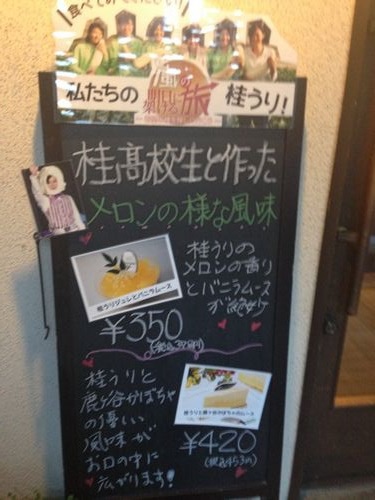 食べてみてください!
私たちの
旅
桂うり!
桂高校生と作った
メロンの様な風味
桂うりの
メロンの香り
とバニラムース
が絶妙
桂うりジュレとバニラムース
¥350
桂うりと
鹿ヶ谷かぼちゃ
の優しい
風味が
お口の中に
広がります!
¥420
(税込453円)